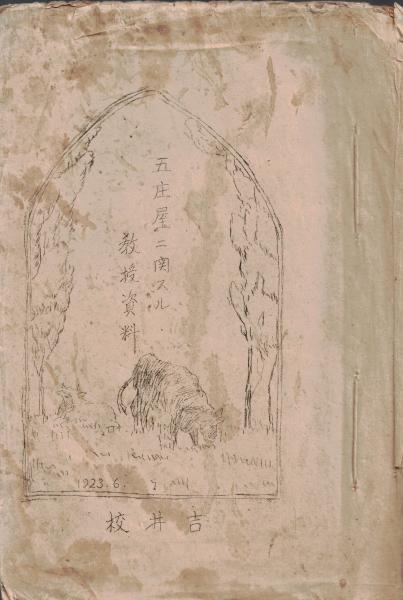 五庄屋ニ関スル
教授資料
1923.6.
吉井校